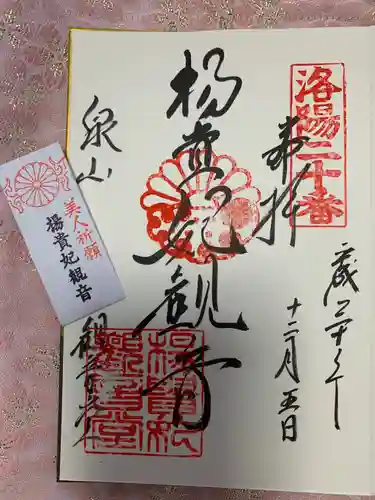 洛陽二十番
奉拝
十二月五日
楊貴妃観音
楊貴妃観音堂
泉山
観音堂
美人祈願
楊貴妃観音